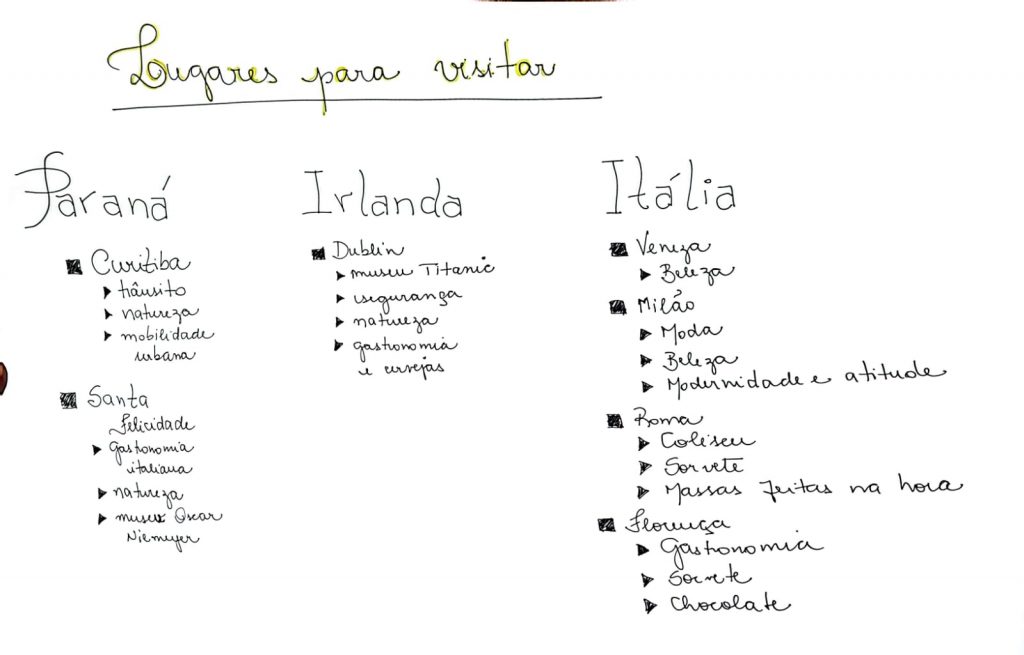 Lugares para visitar
Paraná
Curitiba
trânsito
natureza
mobilidade
urbana
Santa
Felicidade
gastronomia
italiana
natureza
museu Oscar
Niemeyer
Irlanda
Dublin
museu Titanic
segurança
natureza
gastronomia
e cervejas
Itália
Veneza
Beleza
Milão
Moda
Beleza
Modernidade e atitude
Roma
Coliseu
Sorvete
Massas feitas na hora
Florença
Gastronomia
Sorvete
Chocolate